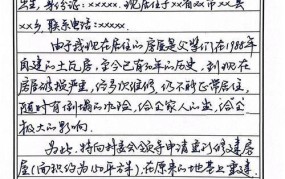 身份证：xxxxx. 现居住于xx省xx市xx县
xx乡, 联系电话：xxxxx.
由于我现在居住的房屋是父辈们在1988年
自建的土瓦房, 至今已有30年的历史, 到现在
房屋破损严重, 经多次维修, 仍不能正常居住,
随时有倒塌的危险, 给全家人的生
极大的影响.
为此, 特向村委会领导申请重新修建房
屋(面积约为150平方米), 在原来的地基上重建.